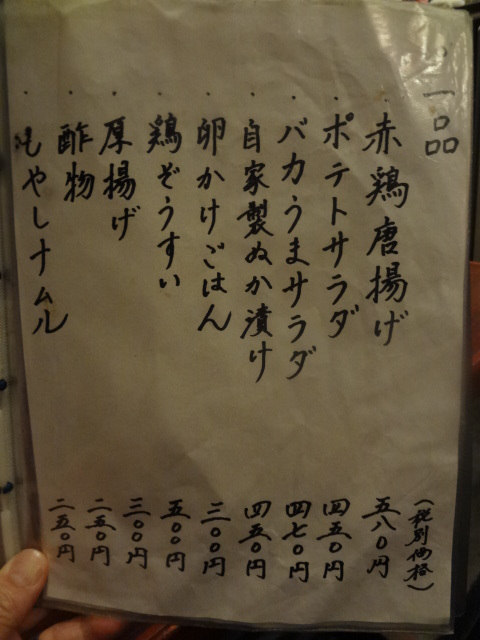 一品
(税別価格)
赤鶏唐揚げ 五八〇円
ポテトサラダ 四五〇円
バカうまサラダ 四七〇円
自家製ぬか漬け 四五〇円
卵かけごはん 三〇〇円
鶏ぞうすい 五〇〇円
厚揚げ 三〇〇円
酢物 二五〇円
もやしナムル 二五〇円